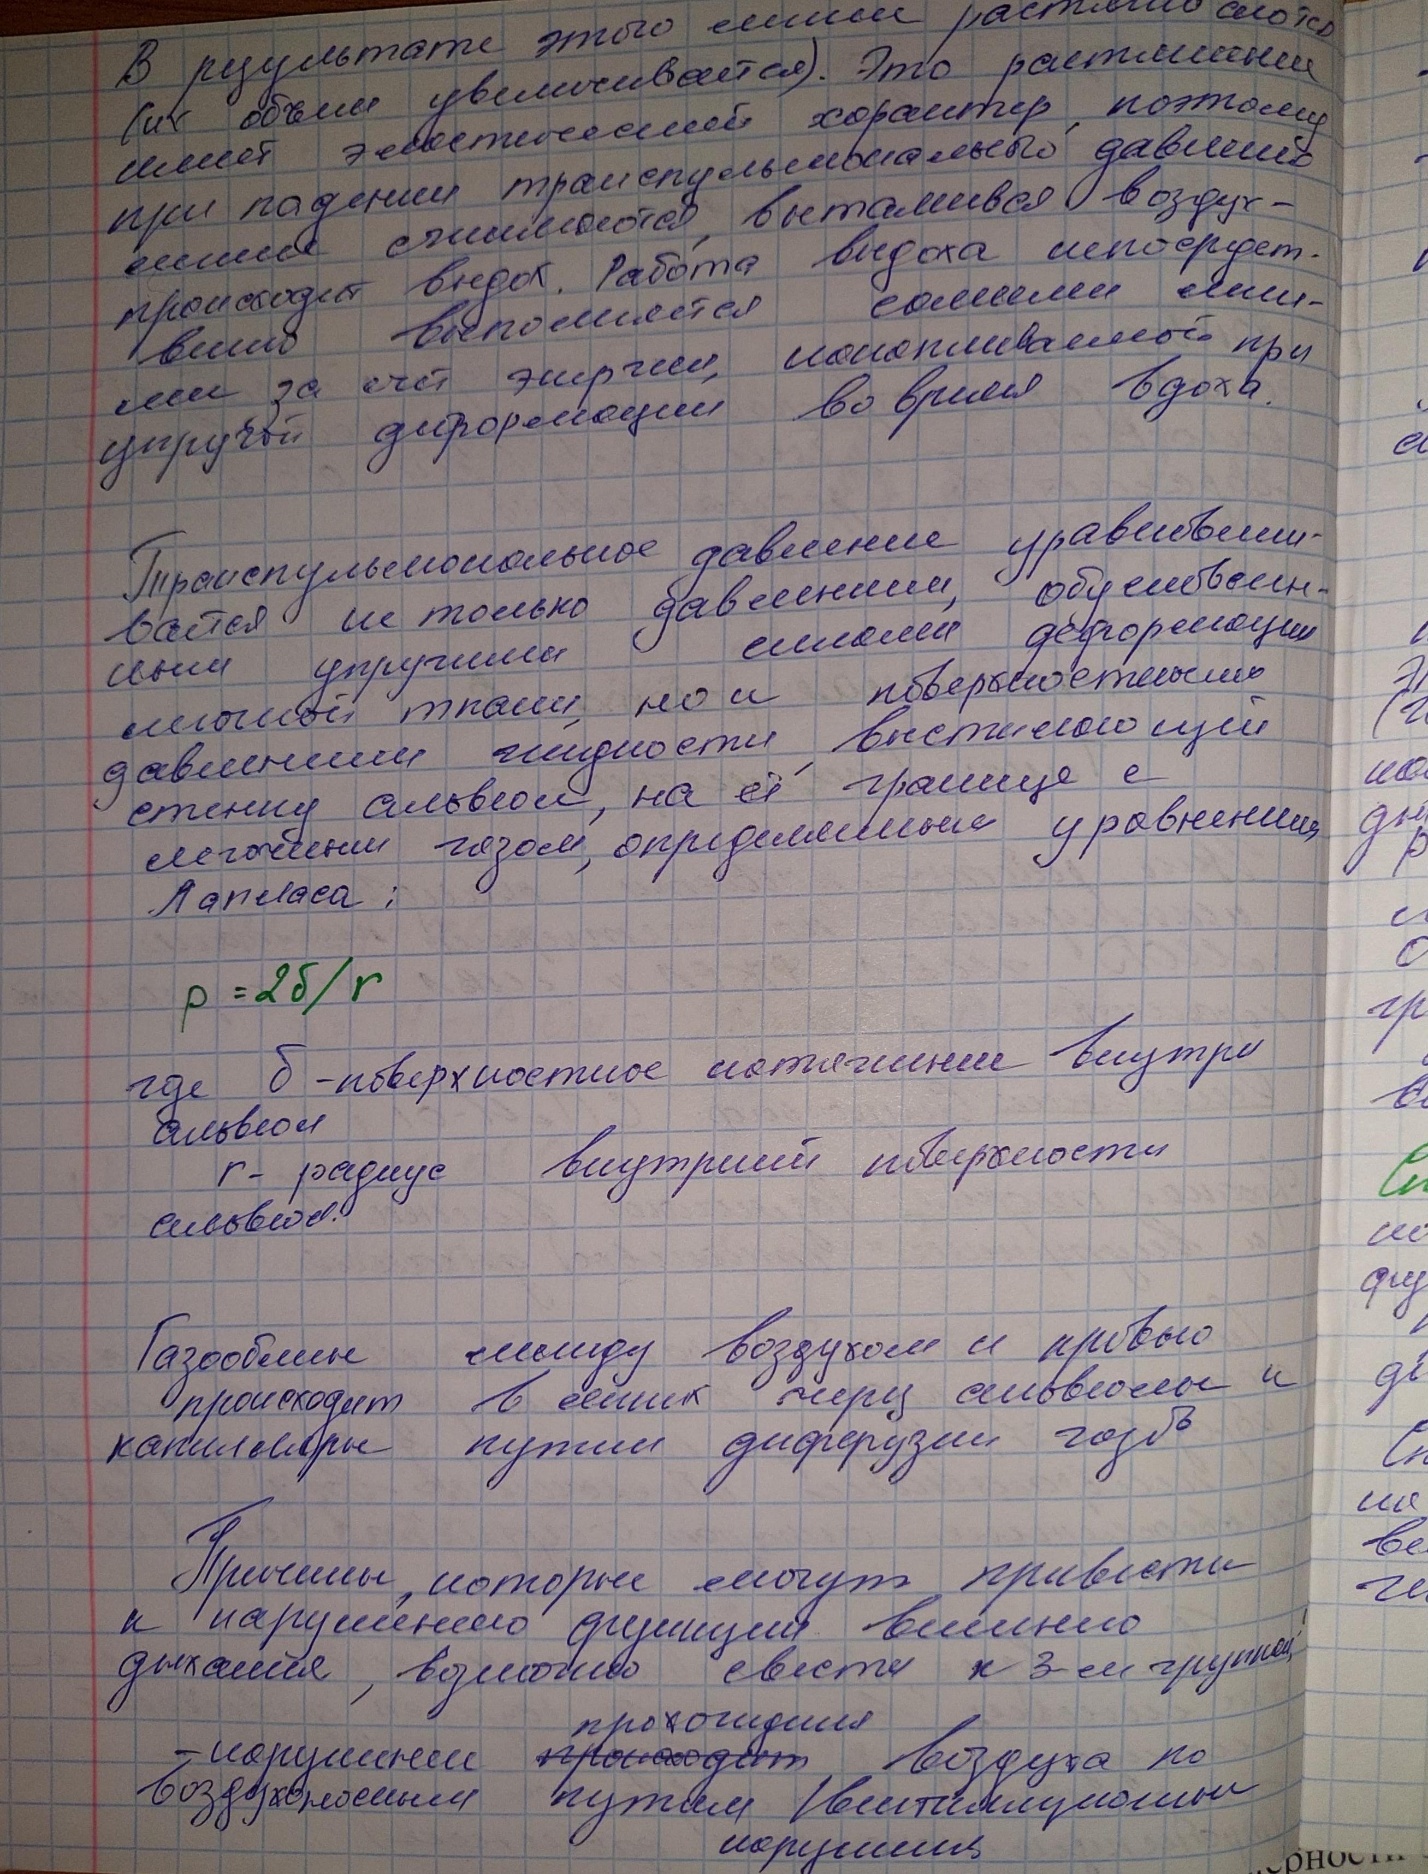 В результате этого легкие растягиваются
(их объем увеличивается). Это растяжение
имеет эластический характер, поэтому
при падении транспульмонального давления
легкие сжимаются, выталкивая воздух -
происходит выдох. Работа выдоха непосредст-
венно выполняется самими легки-
ми за счет энергии, накапливаемой при
упругой деформации во время вдоха.
Транспульмональное давление уравновеши-
вается не только давлением, обусловлен-
ным упругими силами деформации
легочной ткани, но и поверхностным
давлением жидкости, выстилающей
стенку альвеол, на её границе с
легочным газом, определяемым уравнением
Лапласа:
p = 2б/r
где б - поверхностное натяжение внутри
альвеол
r - радиус внутренней поверхности
альвеол.
Газообмен между воздухом и кровью
происходит в легких через альвеолы и
капилляры путем диффузии газов
Причины, которые могут привести
к нарушению функции внешнего
дыхания, возможно свести к 3-ем группам:
прохождения
- нарушение происходит воздуха по
воздухоносным путям (вентиляционные
нарушения